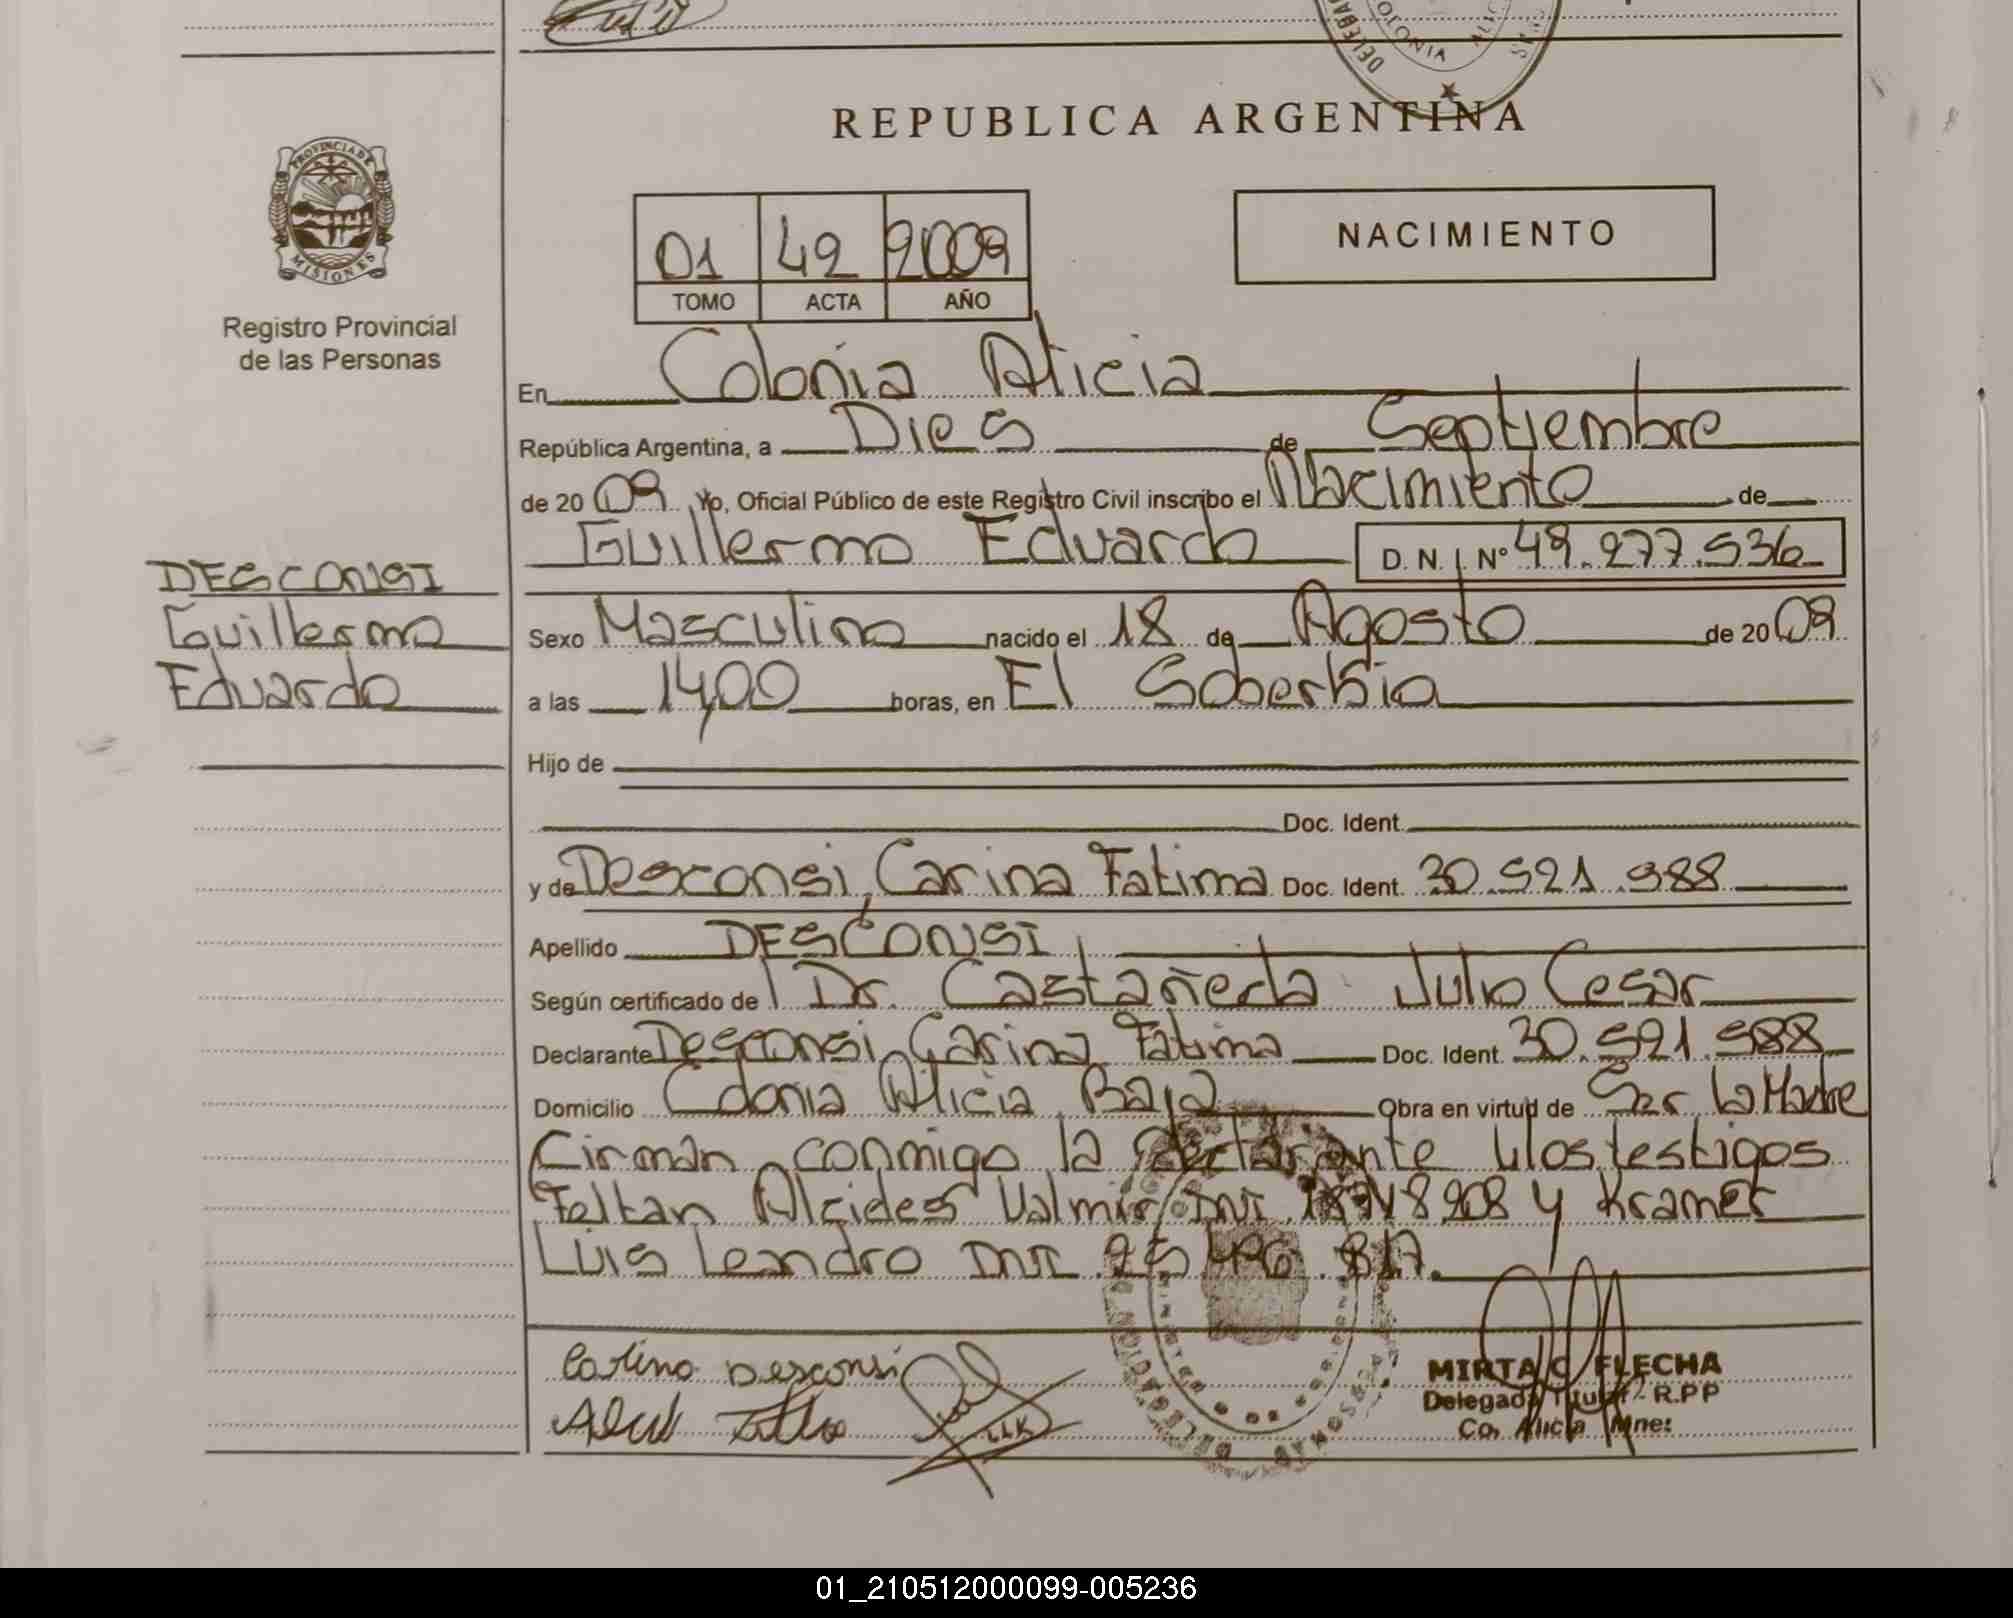 DELEGA
COLONIA ALIC
REPUBLICA ARGENTINA
PROVINCIA DE
MISIONES
Registro Provincial
de las Personas
01 49 2009
TOMO ACTA AÑO
NACIMIENTO
En Colonia Alicia
República Argentina, a Dies de Septiembre
de 20 09 Yo, Oficial Público de este Registro Civil inscribo el Nacimiento de
Guillermo Eduardo D. N. I. N° 49.277.536
DESCONSI
Guillermo
Eduardo
Sexo Masculino nacido el 18 de Agosto de 20 09
a las 14,00 horas, en El Soberbia
Hijo de
Doc. Ident.
y de Desconsi, Carina Fatima Doc. Ident. 30.521.988
Apellido DESCONSI
Según certificado de Dr. Castañeda Julio Cesar
Declarante Desconsi, Carina Fatima Doc. Ident. 30.521.988
Domicilio Colonia Alicia Baja Obra en virtud de Ser la Madre
Firman conmigo la declarante y los testigos
Feltan Alcides Valmir DNI 18.748.908 y Kramer
Luis Leandro DNI 25.496.817.
Carina Desconsi
LLK
MIRTA C. FLECHA
Delegada Titular - R.P.P
Co. Alicia Mnes
01_210512000099-005236